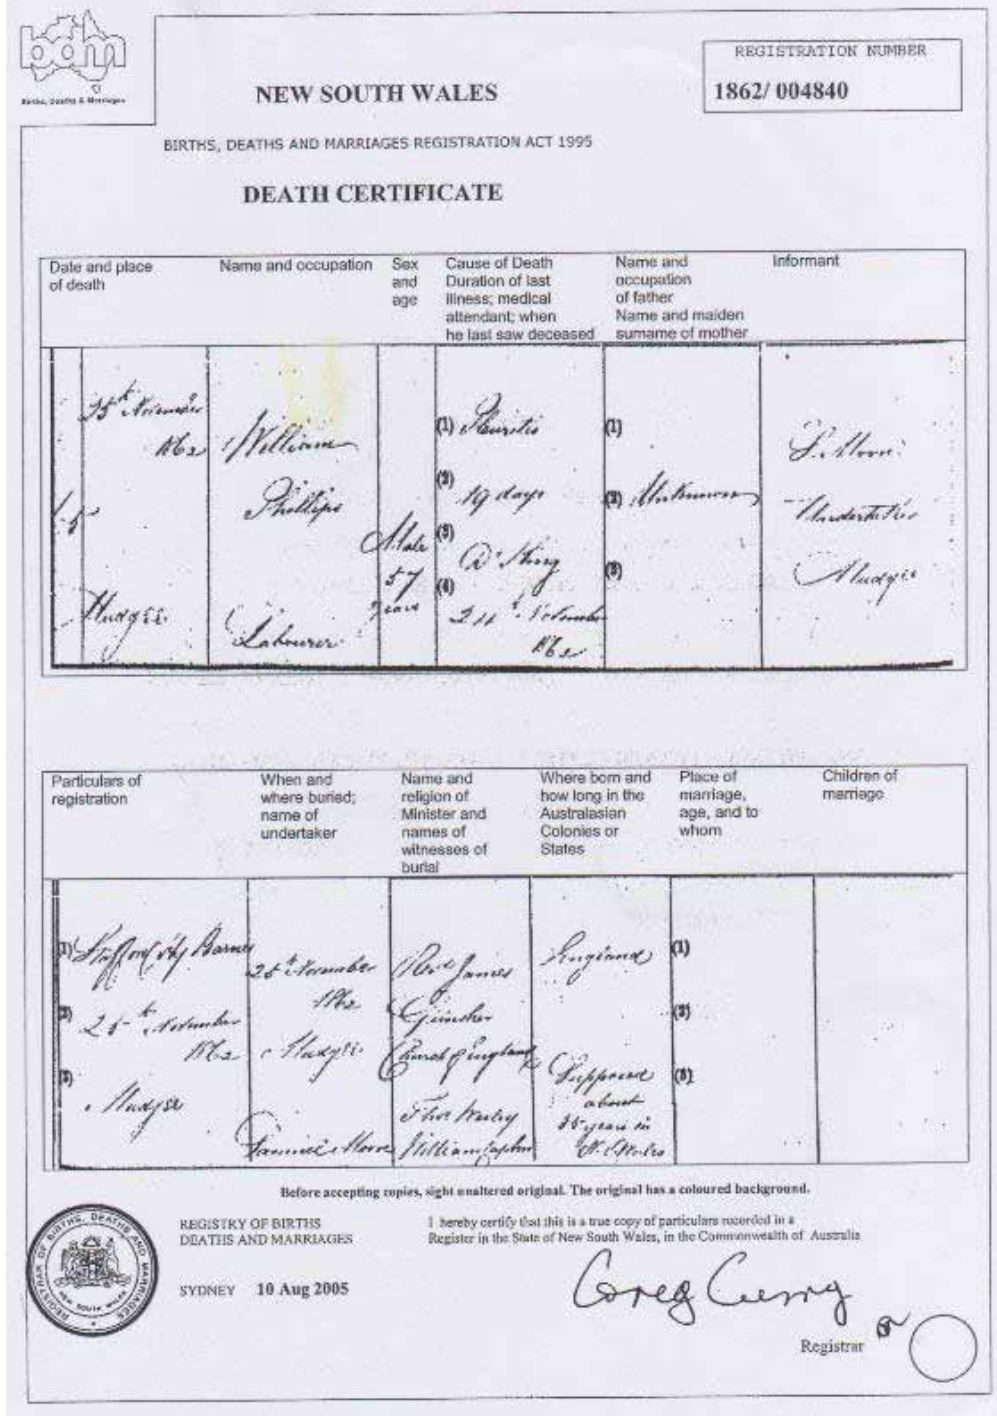 bdm
Births, Deaths & Marriages
REGISTRATION NUMBER
1862/ 004840
NEW SOUTH WALES
BIRTHS, DEATHS AND MARRIAGES REGISTRATION ACT 1995
DEATH CERTIFICATE
Date and place
of death
Name and occupation
Sex
and
age
Cause of Death
Duration of last
illness; medical
attendant; when
he last saw deceased
Name and
occupation
of father
Name and maiden
surname of mother
Informant
25th November
1862
Mudgee
William
Phillips
Labourer
Male
57
years
(1) Pleuritis
(2)
19 days
(3)
Dr King
(4)
November
1862
(1)
(2) Unknown
(3)
S. Moore
Undertaker
Mudgee
Particulars of
registration
When and
where buried;
name of
undertaker
Name and
religion of
Minister and
names of
witnesses of
burial
Where born and
how long in the
Australasian
Colonies or
States
Place of
marriage,
age, and to
whom
Children of
marriage
(1) Barnes
(2)
25th November
1862
(3)
Mudgee
25th November
1862
Mudgee
Samuel Moore
Revd James
Günther
Church of England
Thos
William
England
Supposed
about
35 years in
N. S. Wales
(1)
(2)
(3)
Before accepting copies, sight unaltered original. The original has a coloured background.
REGISTRAR OF BIRTHS, DEATHS AND MARRIAGES
NEW SOUTH WALES
REGISTRY OF BIRTHS
DEATHS AND MARRIAGES
SYDNEY 10 Aug 2005
I hereby certify that this is a true copy of particulars recorded in a
Register in the State of New South Wales, in the Commonwealth of Australia
Greg Curry
Registrar